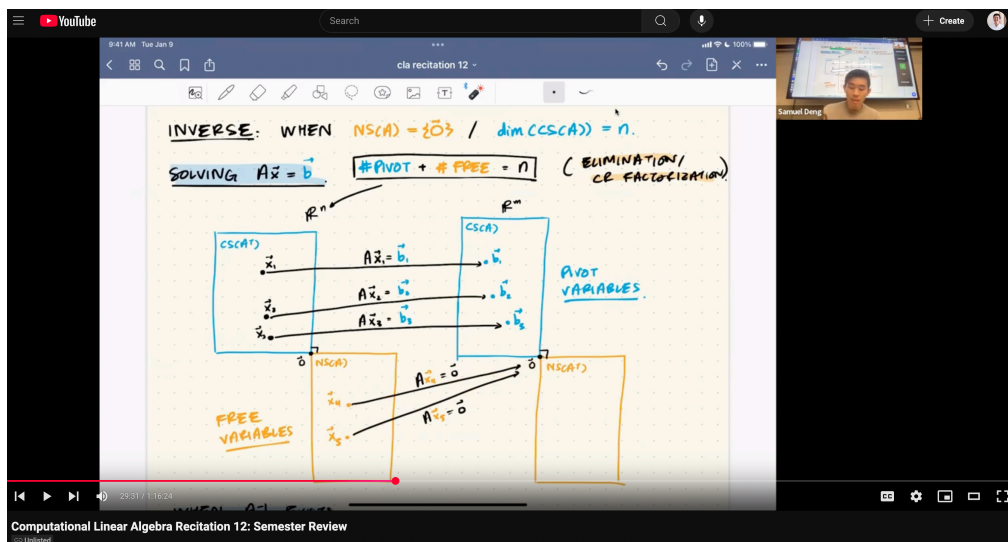 YouTube
Search
Create
9:41 AM Tue Jan 9
100%
cla recitation 12
Samuel Deng
INVERSE: WHEN NS(A) = {0⃗} / dim(CS(A)) = n.
SOLVING Ax⃗ = b⃗ #PIVOT + #FREE = n (ELIMINATION/
CR FACTORIZATION)
ℝⁿ ℝᵐ
CS(Aᵀ) CS(A)
x⃗₁ Ax⃗₁ = b⃗₁ b⃗₁
PIVOT
VARIABLES.
x⃗₂ Ax⃗₂ = b⃗₂ b⃗₂
x⃗₃ Ax⃗₃ = b⃗₃ b⃗₃
0⃗ NS(A) 0⃗ NS(Aᵀ)
Ax⃗₄ = 0⃗
x⃗₄
Ax⃗₅ = 0⃗
FREE
VARIABLES
x⃗₅
29:31 / 1:16:24
Computational Linear Algebra Recitation 12: Semester Review
Unlisted